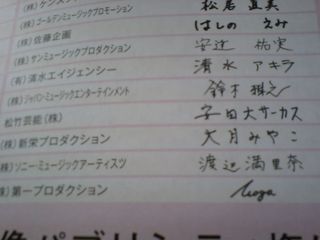 (株)ケンズ 松居直美
(株)ゴールデンミュージックプロモーション はしのえみ
(株)佐藤企画 安達祐実
(株)サンミュージックプロダクション 清水アキラ
(有)清水エイジェンシー 鈴木雅之
(株)ジャパン・ミュージックエンターテインメント 安田大サーカス
松竹芸能(株) 大月みやこ
(株)新栄プロダクション 渡辺満里奈
(株)ソニー・ミュージックアーティスツ
(株)第一プロダクション